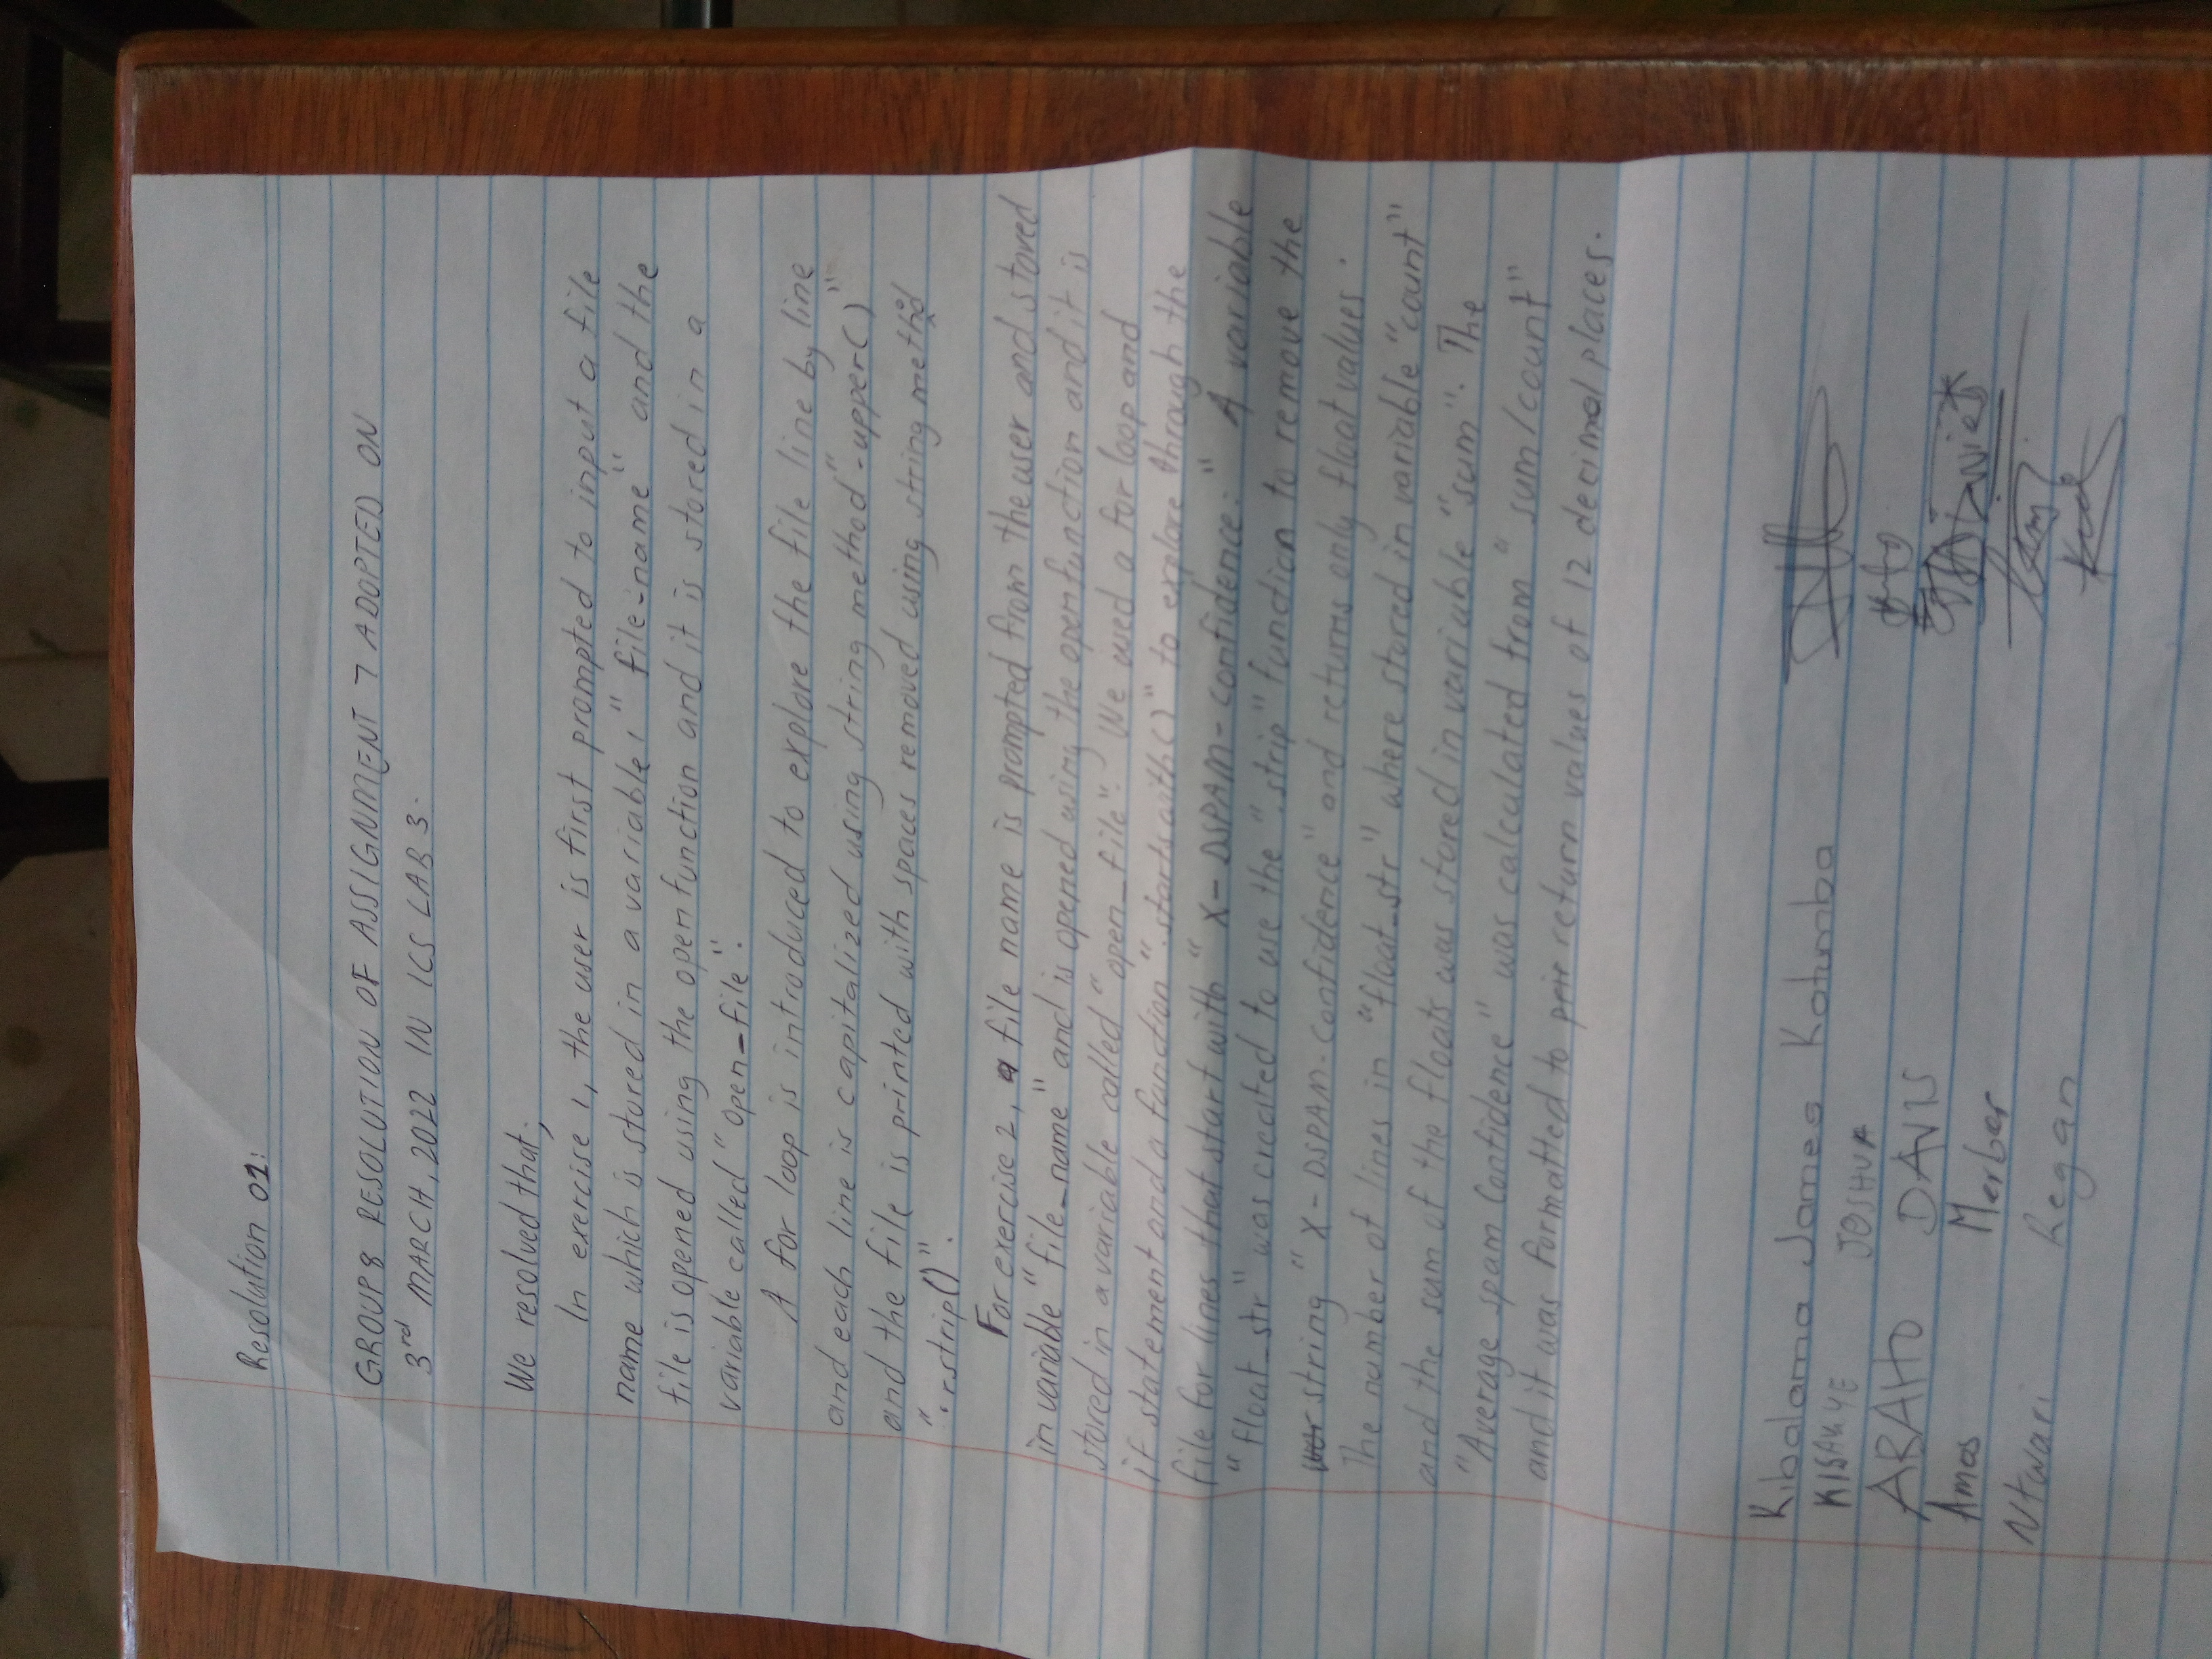 Resolution 01:
GROUP 8 RESOLUTION OF ASSIGNMENT 7 ADOPTED ON
3rd MARCH, 2022 IN ICS LAB 3.
We resolved that;
In exercise 1, the user is first prompted to input a file
name which is stored in a variable, "file-name" and the
file is opened using the open function and it is stored in a
variable called "open_file".
A for loop is introduced to explore the file line by line
and each line is capitalized using string method ".upper()"
and the file is printed with spaces removed using string method
".rstrip()".
For exercise 2, a file name is prompted from the user and stored
in variable "file_name" and is opened using the open function and it is
stored in a variable called "open_file". We used a for loop and
if statement and a function ".startswith()" to explore through the
file for lines that start with "X-DSPAM-confidence:" A variable
"float_str" was created to use the ".strip" function to remove the
string "X-DSPAM-confidence" and returns only float values.
The number of lines in "float_str" where stored in variable "count"
and the sum of the floats was stored in variable "sum". The
"Average spam Confidence" was calculated from "sum/count"
and it was formatted to return values of 12 decimal places.
Kibalama James Katumba
KISAKYE JOSHUA
DAVIS
Amos Merber
Ntwari Regan